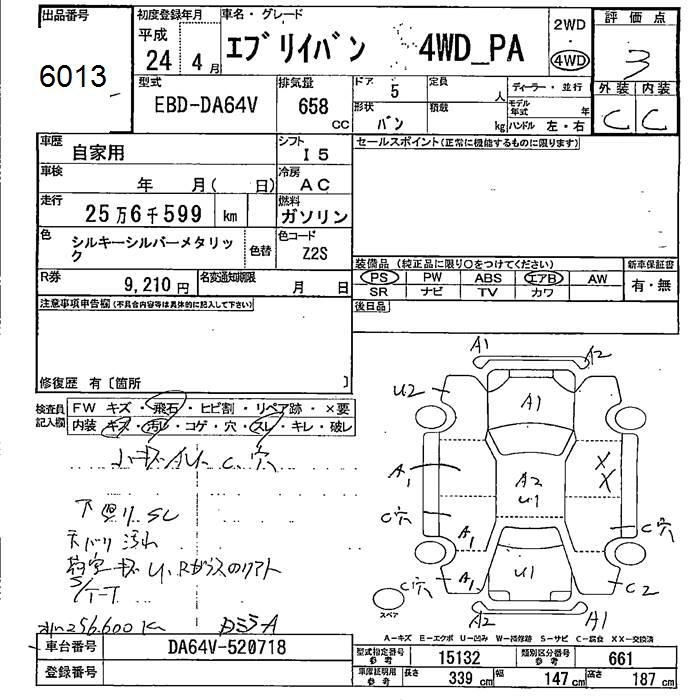 出品番号
6013
初度登録年月
平成
24 4月
車名・グレード
エブリイバン 4WD_PA
2WD
4WD
評価点
3
外装 内装
C C
型式
EBD-DA64V
排気量
658 CC
ドア
5
定員
人
形状
バン
積載
kg
ディーラー・並行
モデル年式 年
ハンドル 左・右
車歴
自家用
シフト
I5
車検
年 月( 日)
冷房
AC
走行
25万6千599 km
燃料
ガソリン
色
シルキーシルバーメタリック
色替
色コード
Z2S
R券
9,210円
名変通知期限
月 日
セールスポイント(正常に機能するものに限ります)
装備品 (純正品に限り○をつけてください)
PS PW ABS エアB AW
SR ナビ TV カワ
新車保証書
有・無
後日品
注意事項申告欄(不具合内容等は具体的に記入して下さい)
修復歴 有〔箇所 〕
検査員記入欄
FW キズ・飛石・ヒビ割・リペア跡・×要
内装 キズ・汚レ・コゲ・穴・スレ・キレ・破レ
下廻りSC
天バリ汚れ
A1 A2
U2
A1
A1
A2
U1
XX
C穴
C穴
A1
A1
C穴
U1
C2
A2 A1
スペア
A-キズ E-エクボ U-凹み W-補修跡 S-サビ C-腐食 XX-交換済
車台番号
DA64V-520718
登録番号
型式指定番号 参考
15132
類別区分番号 参考
661
車庫証明用 参考
長さ 339 cm
幅 147 cm
高さ 187 cm